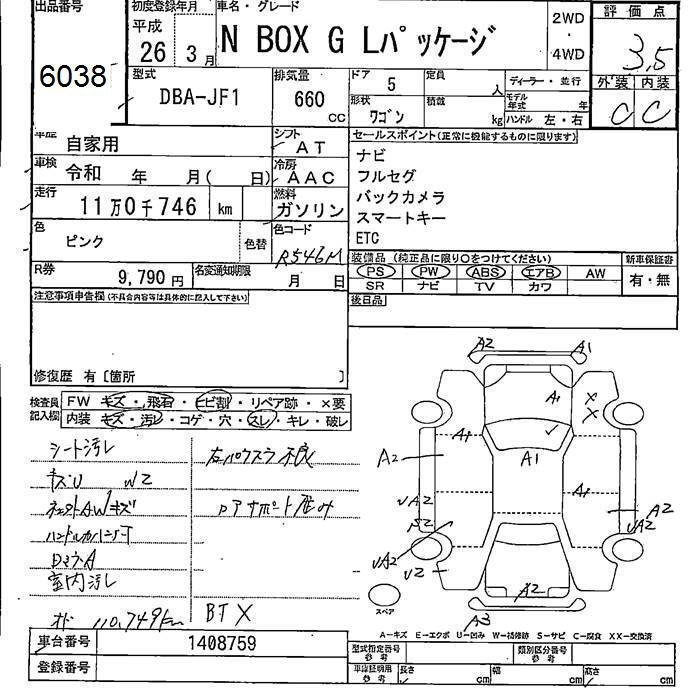 出品番号
6038
初度登録年月
平成
26 3月
車名・グレード
N BOX G Lパッケージ
2WD
・
4WD
評価点
3,5
外装 内装
C C
型式
DBA-JF1
排気量
660
CC
ドア 5
定員 人
形状 ワゴン
積載 kg
ディーラー・並行
モデル年式 年
ハンドル 左・右
車歴 自家用
シフト AT
車検 令和 年 月( 日)
冷房 AAC
走行 11万0千746 km
燃料 ガソリン
色 ピンク 色替
色コード R546M
R券 9,790円
名変通知期限 月 日
セールスポイント(正常に機能するものに限ります)
ナビ
フルセグ
バックカメラ
スマートキー
ETC
装備品 (純正品に限り○をつけてください)
PS PW ABS エアB AW
SR ナビ TV カワ
新車保証書
有・無
後日品
注意事項申告欄(不具合内容等は具体的に記入して下さい)
修復歴 有〔箇所 〕
検査員記入欄
FW キズ・飛石・ヒビ割・リペア跡・×要
内装 キズ・汚レ・コゲ・穴・スレ・キレ・破レ
シート汚レ
キズU W2
室内汚レ
オド 110,749km
左パワスラ不良
BT X
A2 A1
A1 X
X
A1 A1
A2
A1
A2
UA2
S2
UA2
U2
A2
UA2
A2
A3
スペア
A-キズ E-エクボ U-凹み W-補修跡 S-サビ C-腐食 XX-交換済
車台番号 1408759
登録番号
型式指定番号 参考
類別区分番号 参考
車庫証明用 参考
長さ cm 幅 cm 高さ cm